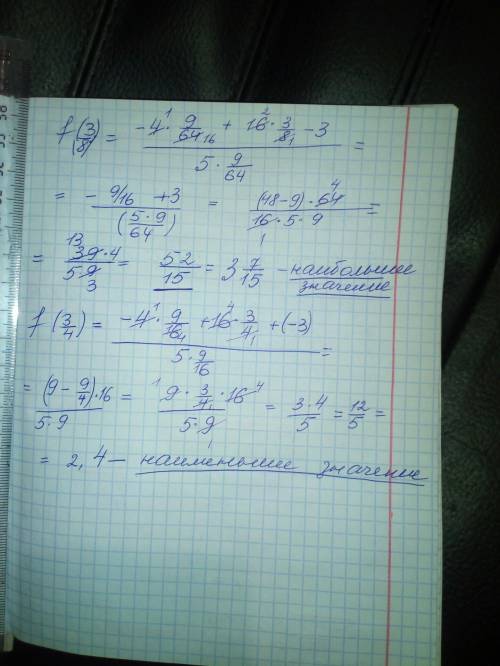 f(3/8) = (-4 · 9/64 + 16 · 3/8 - 3) / (5 · 9/64) =
= (- 9/16 + 3) / (5·9/64) = ((48-9) · 64) / (16 · 5 · 9) =
= (39 · 4) / (5 9) = 52/15 = 3 7/15 - наибольшее
значение
f(3/4) = (-4 · 9/16 + 16 · 3/4 + (-3)) / (5 · 9/16) =
= ((9 - 9/4) · 16) / (5 · 9) = (9 · 3/4 · 16) / (5 · 9) = (3 · 4)/5 = 12/5 =
= 2,4 — наименьшее значение